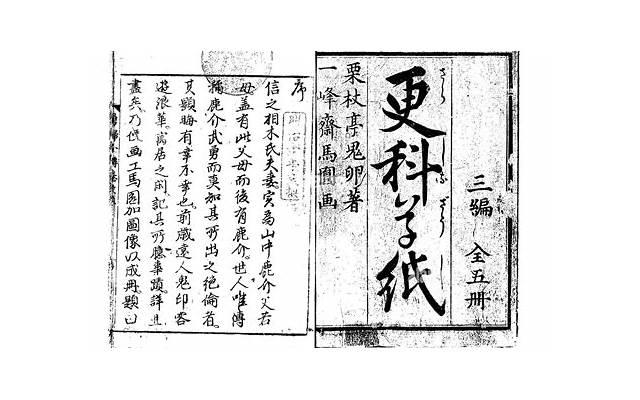 三編 全五冊
更科草紙
さらしなざうし
栗杖亭鬼卵著
一峰齋馬圓画
序
信之相木氏夫妻寔為山中鹿介父若
母蓋有此父母而後有鹿介世人唯傳
稱鹿介武勇而莫知其所出之絶倫者
其顕晦有幸不幸也前歳遠人鬼卵客
遊浪華寓居之間記其所聽事蹟詳且
盡矣乃俾画工馬圓加圖像以成冊題曰